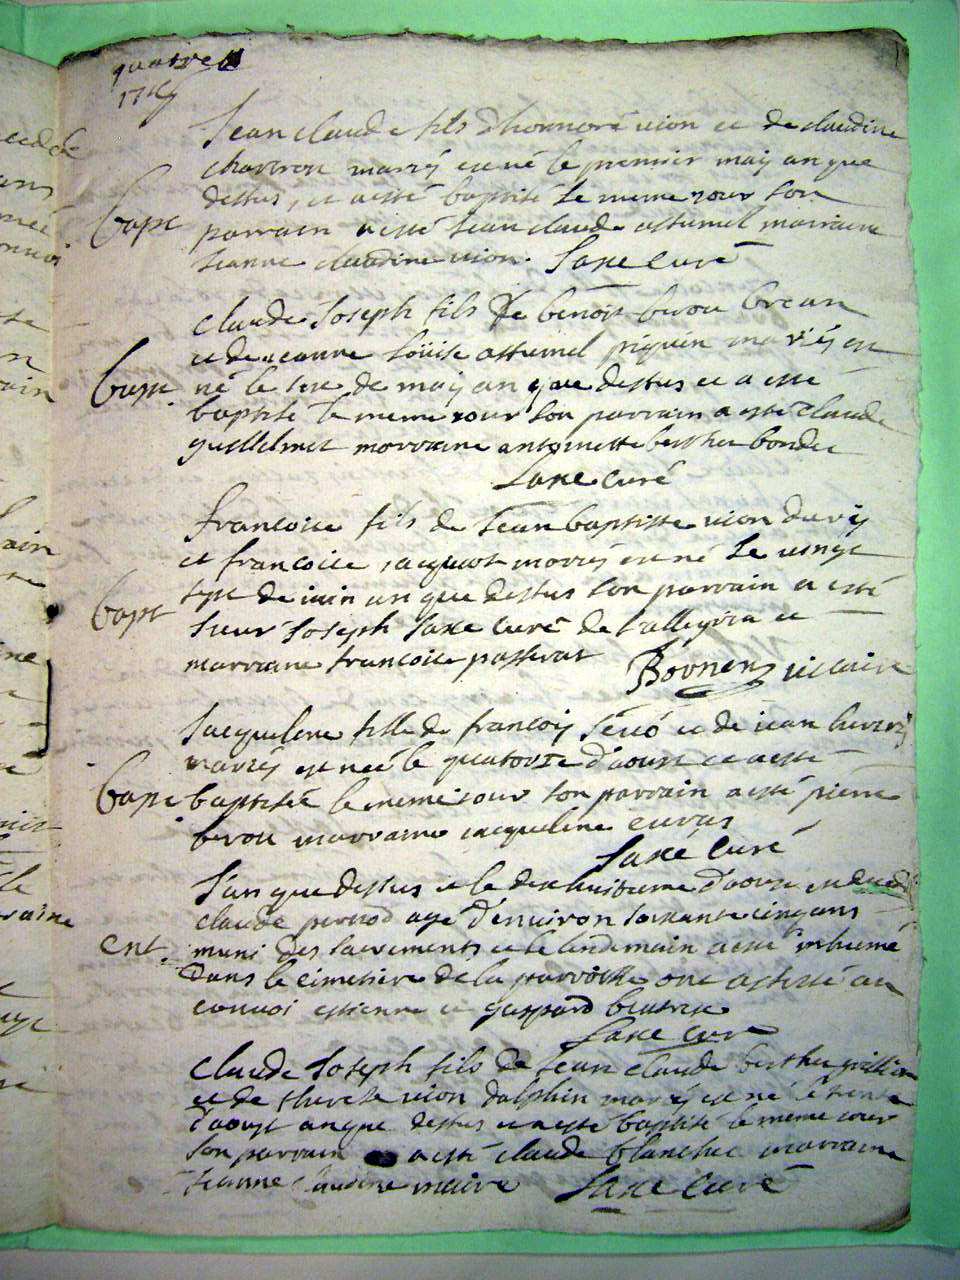 quatre
Jean claude fils d'honnoré vion et de claudine
charron mariés est né le premier may an que
dessus, et a esté baptisé le meme iour son
Bapt parrain a esté Jean claude assumel marraine
Jeanne claudine vion. Saxe Curé
claude Joseph fils de benoit brou
et de ieanne Loüise assumel piquin mariés est
Bapt. né le de may an que dessus et a esté
baptisé le meme iour son parrain a esté claude
guillelmet marraine antoinette berthet bondet
Saxe Curé
francoise fils de Jean baptiste vion
et francoise iacquiot mariés est né le vingt
Bapt de iuin an que dessus son parrain a esté
Sieur Joseph Saxe Curé de et
marraine francoise passerat vicaire
Jacqueline fille de francois et de
mariés est née le quatorze d'aoust et a esté
Bapt baptisée le meme iour son parrain a esté pierre
brou marraine iacqueline
Saxe Curé
L'an que dessus et le dixhuitieme d'aoust
claude perrod agé d'environ soixante cinq ans
Ent. muni des sacrements et le lendemain a esté inhumé
dans le cimetiere de la parroisse ont assisté au
convoi estienne et gaspard beatrix
Saxe Curé
claude Joseph fils de Jean claude berthet
et de therese vion dalphin mariés est né le trente
d'aoust an que dessus et a esté baptisé le meme iour
son parrain a esté claude blanchet marraine
Jeanne claudine maire Saxe Curé